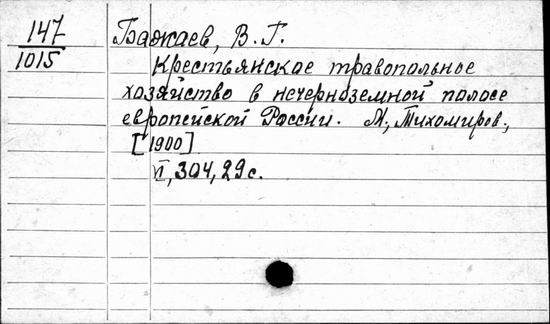 147
1015
Бажаев, В. Г.
Крестьянское травопольное
хозяйство в нечерноземной полосе
европейской России. М., Тихомиров,
[1900]
VI, 304, 29 с.